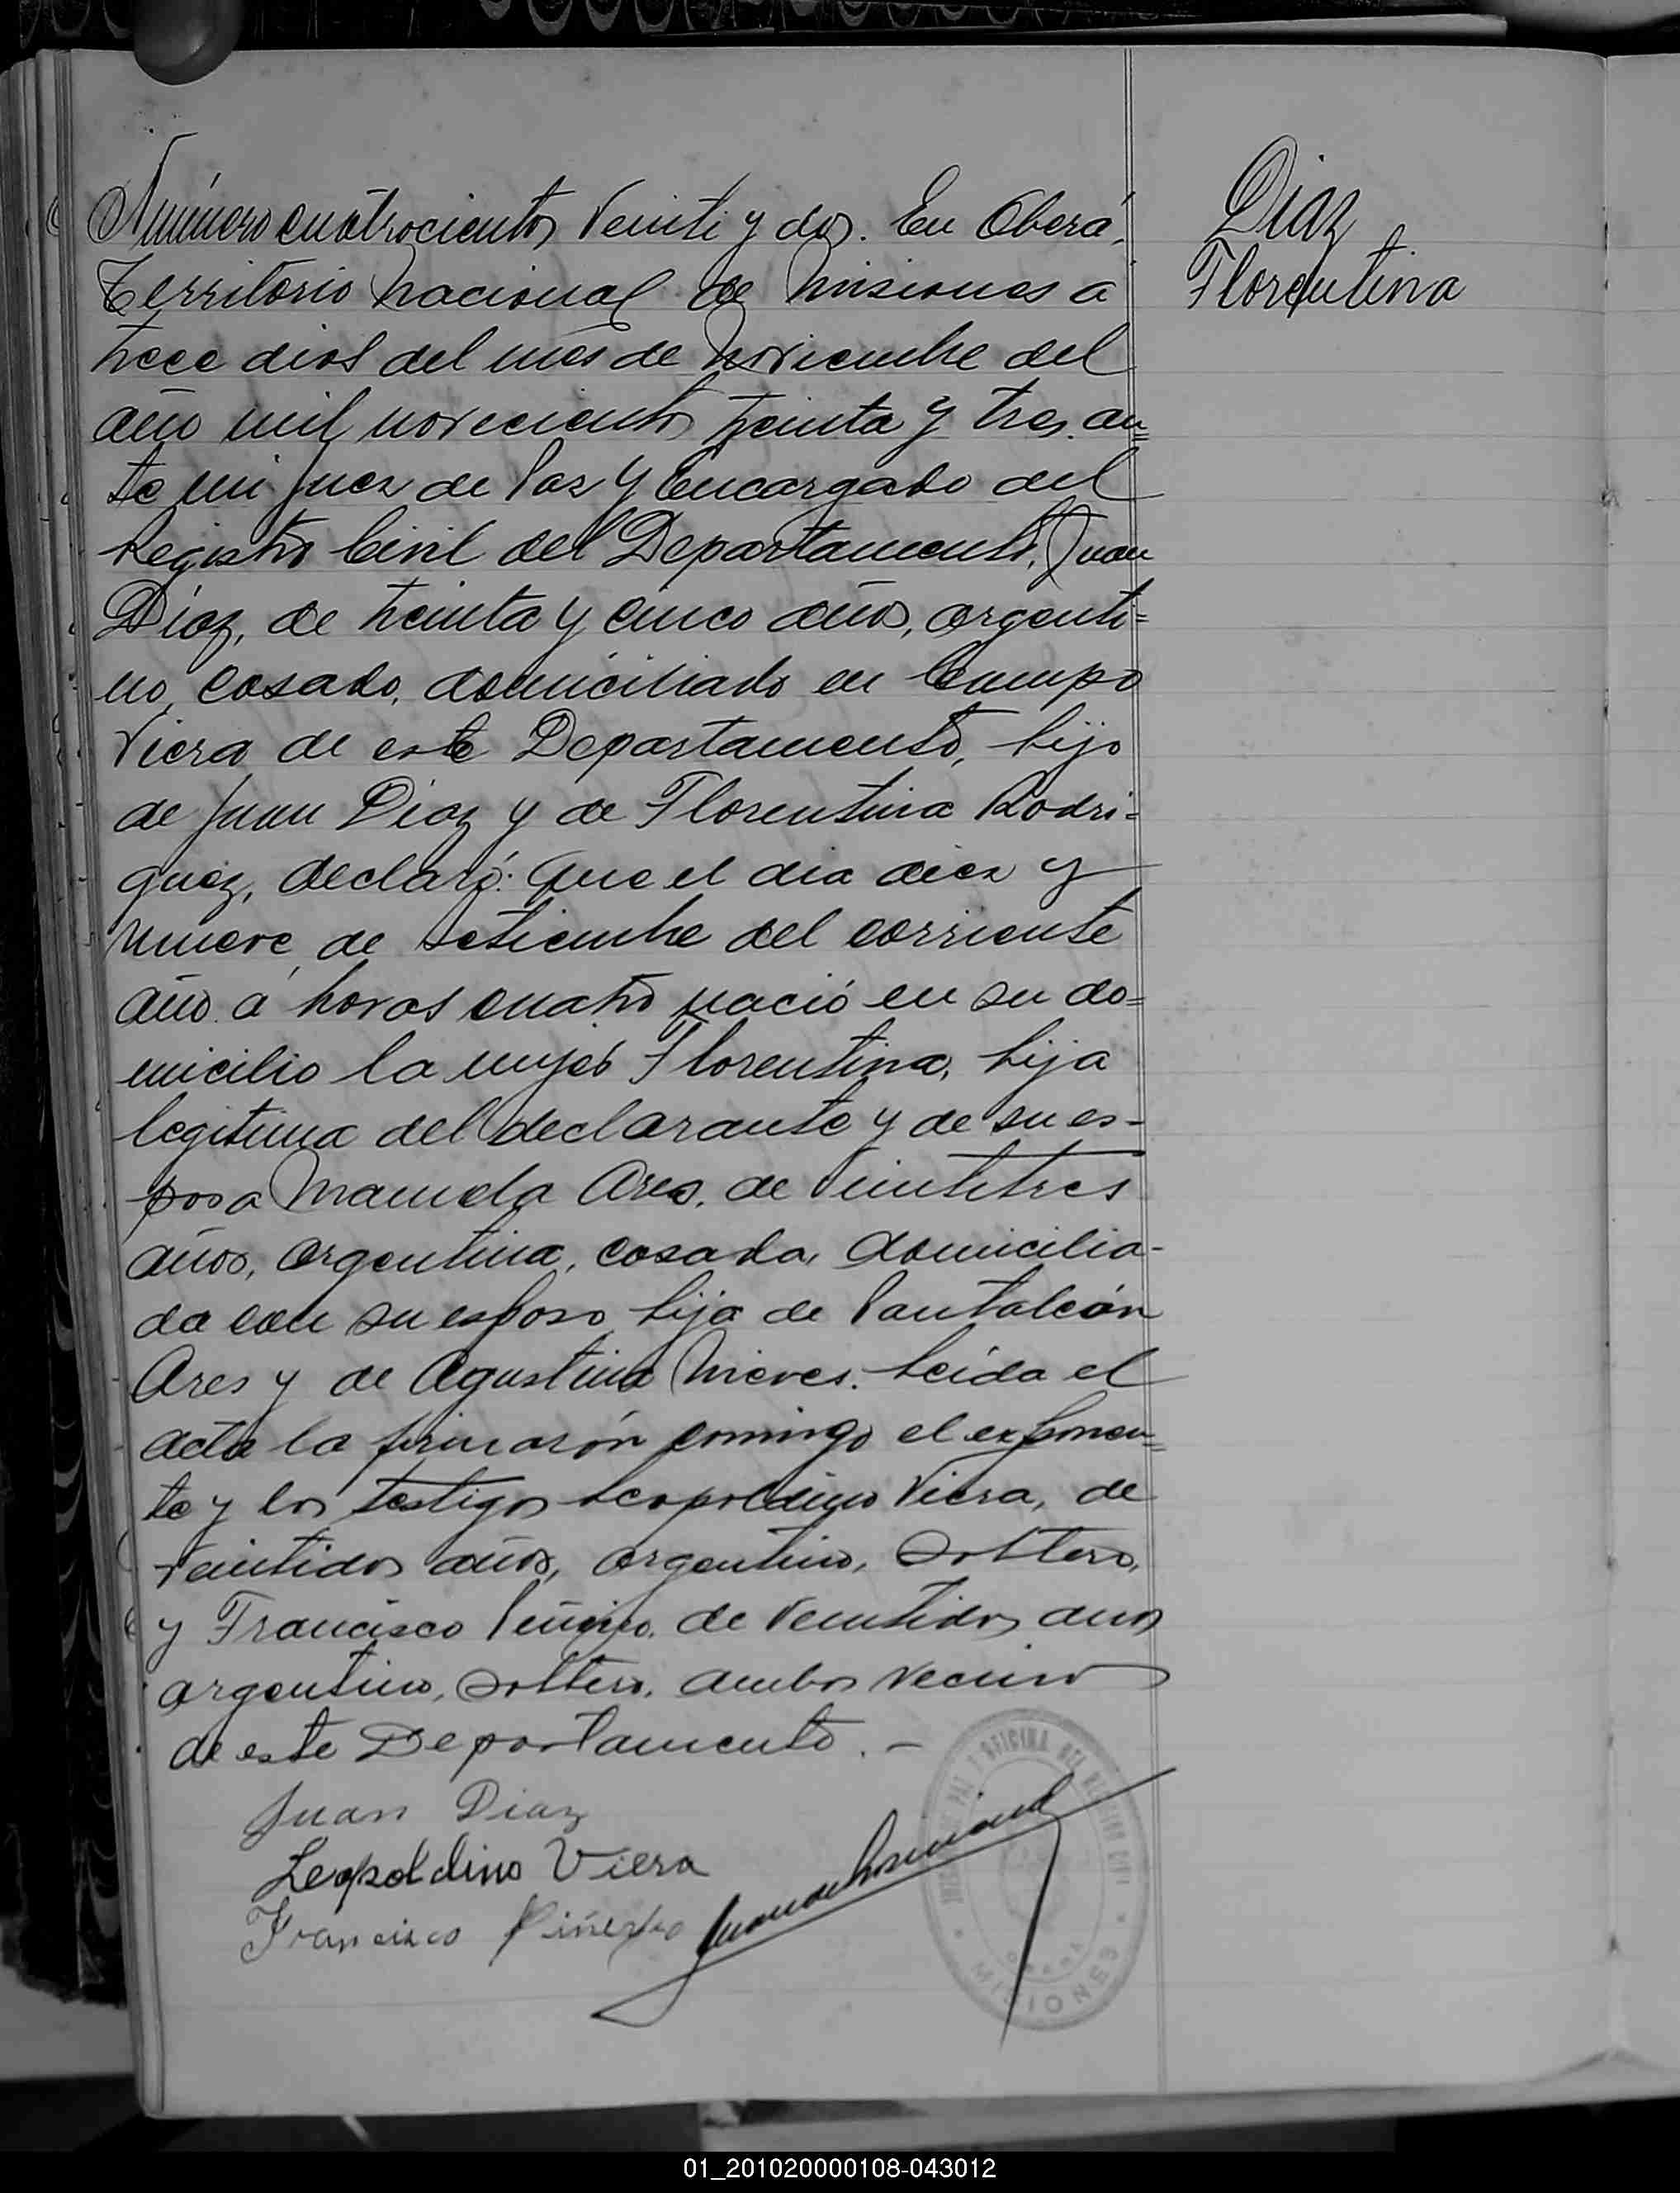 Número cuatrocientos veinti y dos. En Oberá,
Territorio Nacional de Misiones a
trece dias del mes de Noviembre del
año mil novecientos treinta y tres, an=
te mi Juez de Paz y Encargado del
Registro Civil del Departamento, Juan
Diaz, de treinta y cinco años, argenti=
no, casado, domiciliado en Campo
Viera de este Departamento, hijo
de Juan Diaz y de Florentina Rodri=
guez, declaró: Que el dia diez y
nueve de Setiembre del corriente
año a horas cuatro nació en su do=
micilio la mujer Florentina, hija
legitima del declarante y de su es-
posa Manuela Ares, de veintitres
años, argentina, casada, domicilia-
da con su esposo hija de Pantaleón
Ares y de Agustina Nieves. Leida el
acta la firmarón conmigo el exponen=
te y los testigos Leopoldino Viera, de
veintidos años, argentino, soltero,
y Francisco Piñeyro, de veintidos años
argentino, soltero, ambos vecinos
de este Departamento. -
Juan Diaz
Leopoldino Viera
Francisco Piñeyro
Diaz
Florentina
PAZ Y OFICINA DEL REGISTRO CIVIL
OBERA
MISIONES
01_201020000108-043012